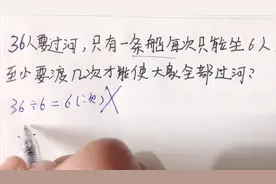 36人要过河,只有一条船每次只能坐6人
至少要渡几次才能使大家全部过河?
36÷6=6(次)